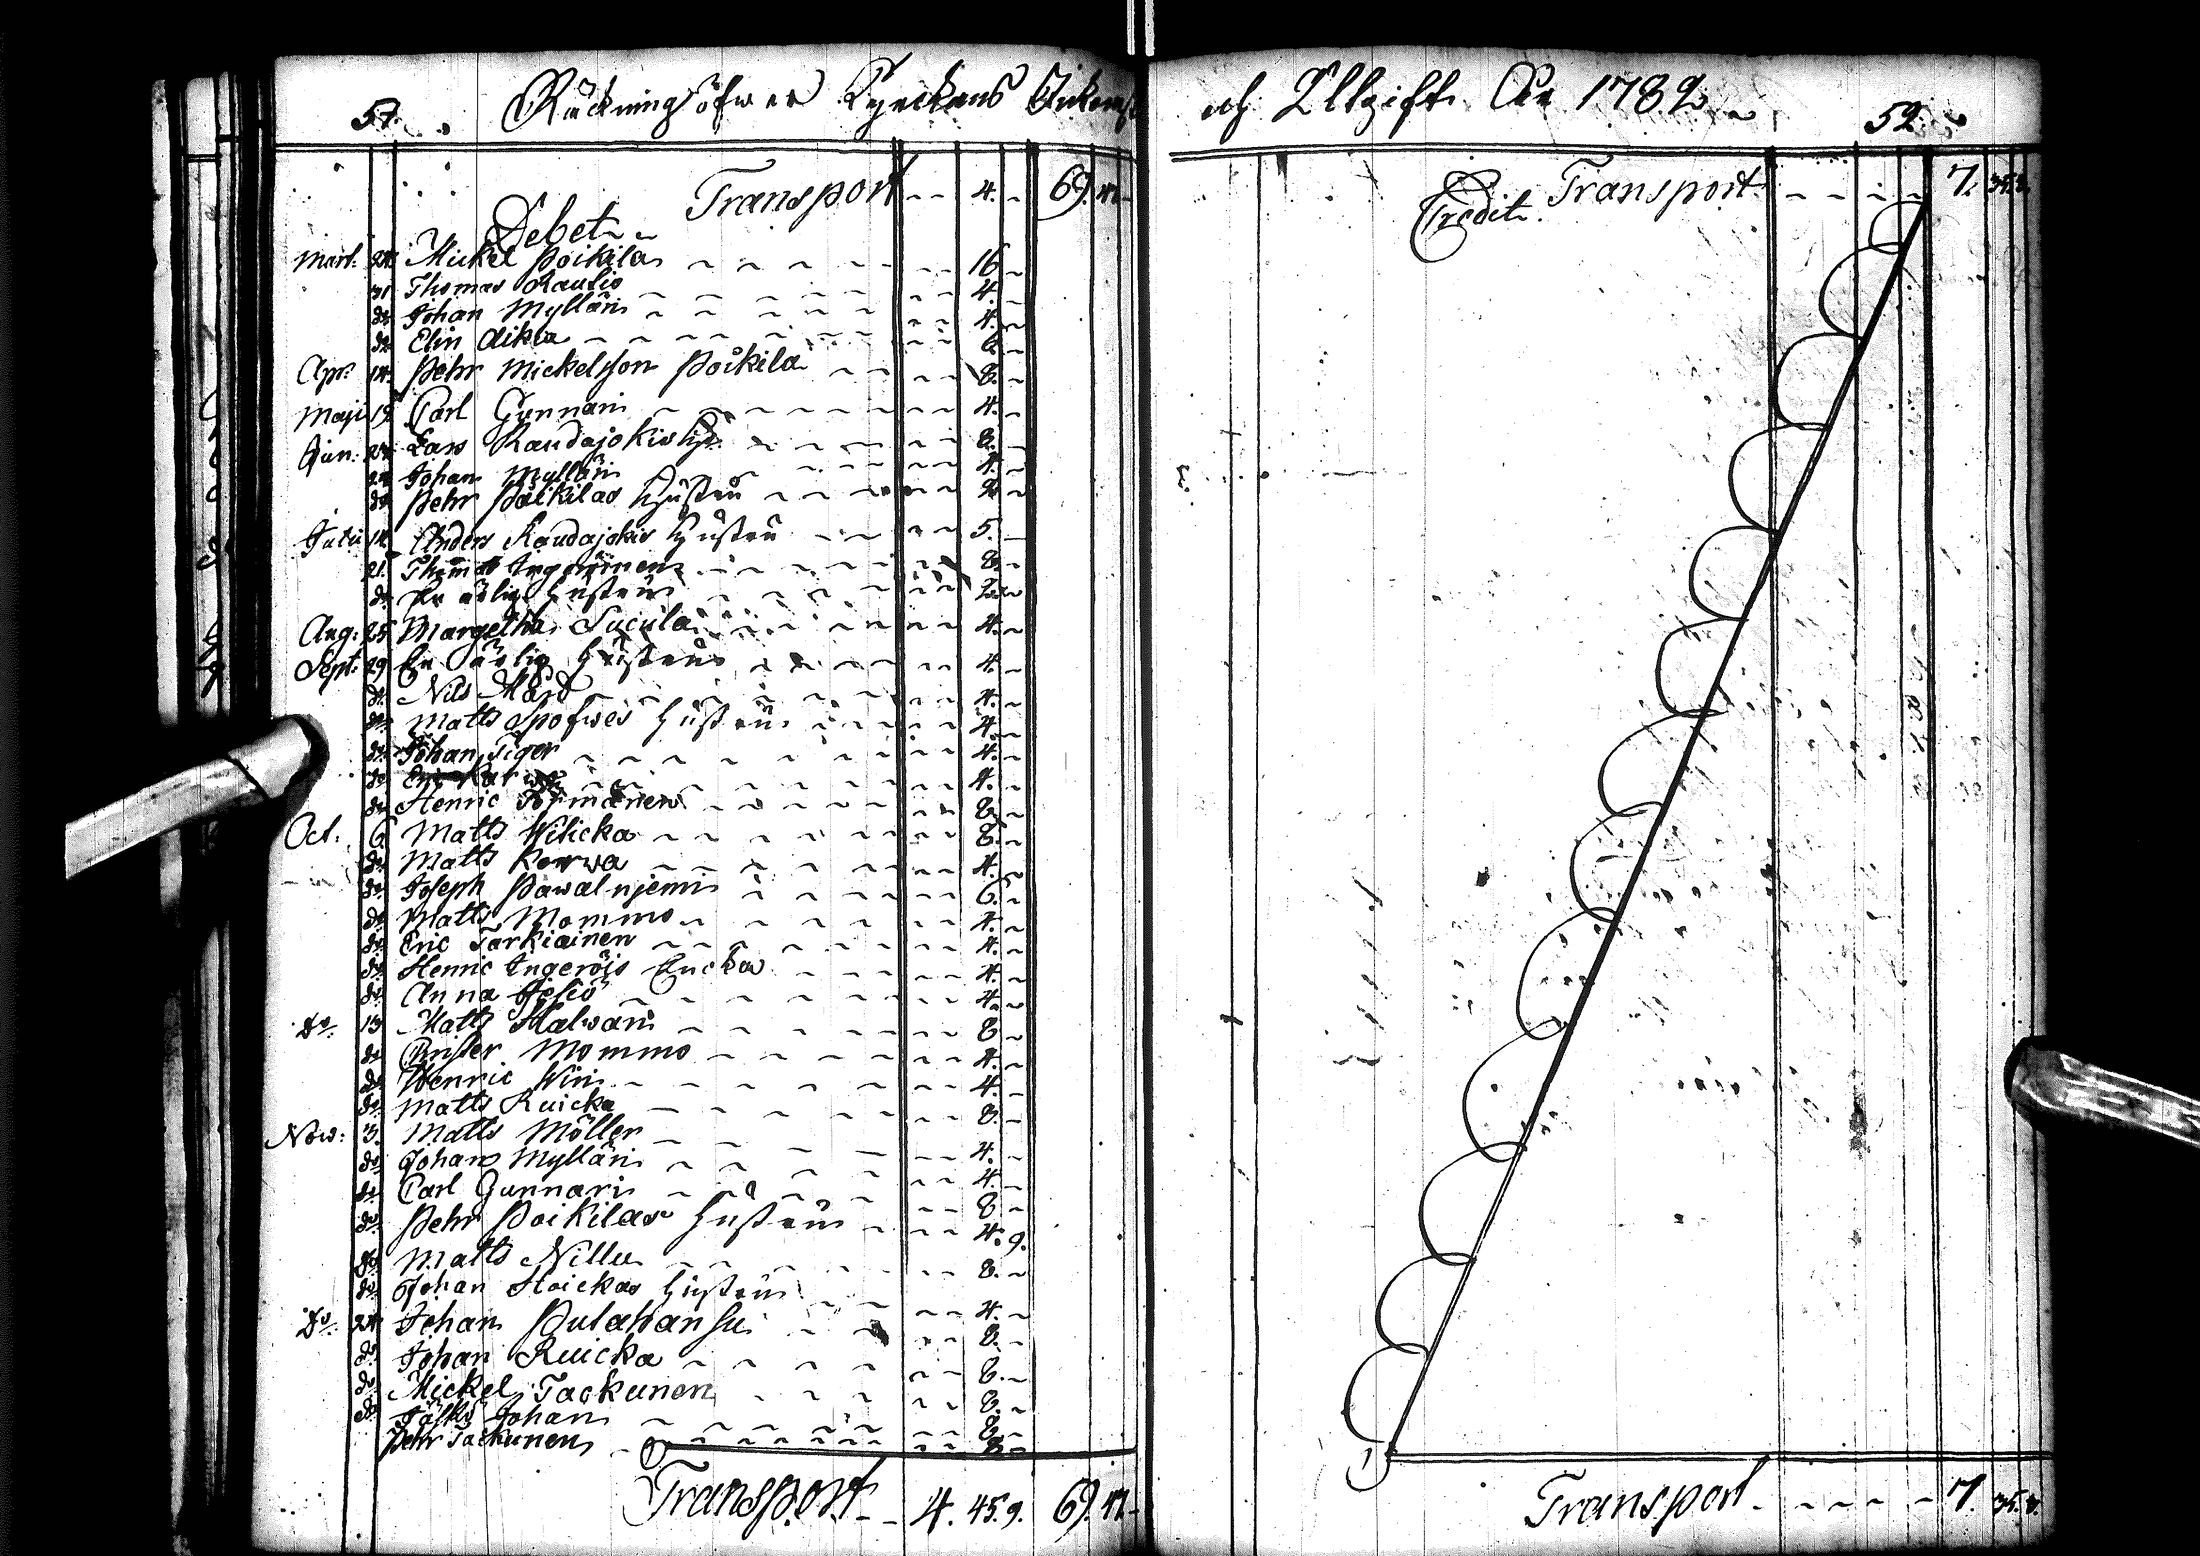 51.
Räckning öfwer Kyrckans Inkomst
Transport - - 4. - 69. 41. -
Debet
Mart. 24. Mickel Poikila 16 -
31 Thomas Rautio 4. -
do Johan Myllari 4. -
do Elin Aikia 6. -
Apr. 14. Pehr Mickelsson Poikila 8. -
Maji 19 Carl Gunnari 4. -
Jun: 24. Lars Raudajokis 8. -
24 Johan Myllari 4. -
do Pehr Poikilas Hustru 4. -
Julii 14. Anders Raudajokis Hustru 5. -
21. 8. -
do En ärlig Hustru
Aug: 25 Margetha Suckula 4. -
Sept: 29 En ärlig Hustru 4. -
do Nils Mård 4. -
do Matts Hustru 4. -
do Johan Tiger 4. -
do 4. -
do Henric Törmänen 8. -
Oct. 6 Matts Wilicka 8. -
do Matts Korwa 4. -
do Joseph Pawalniemi 6. -
do Matts Mommo 4. -
do Eric Tarkiainen 4. -
do Henric Ingeröis Encka 4. -
do Anna Jesiö 4. -
do. 13 Matts Halwari 8 -
do Christer Mommo 4. -
do Henric Wiri 4. -
do Matts Ruicka 8. -
Now: 3. Matts Möller 4. -
do Johan Myllari 4. -
do Carl Gunnari 8 -
do Pehr Poikilas Hustru 4. 9.
do Matts Nillu 8. -
do Johan Hoickas Hustru 4. -
do. 24. Johan Putahansu 8. -
do Johan Ruicka 8. -
do Mickel Tackunen 8. -
do Jåsks Johan 8. -
Pehr Tackunen 8. -
Transport - - 4. 45. 9. 69. 41. -
och Uttgift Åhr 1782
52.
Credit. Transport - - - - 7. 35. 8.
Transport - - - - - 7. 35. 8.